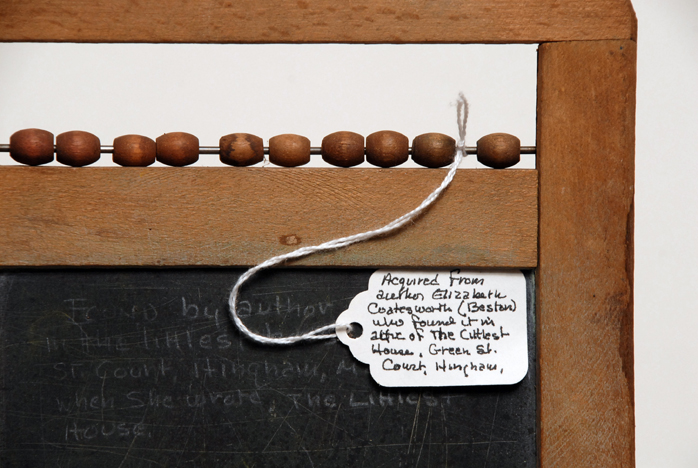 Acquired From
author Elizabeth
Coatesworth (Beston)
who found it in
attic of The Littlest
House, Green St.
Court, Hingham,
Found by author
in the littlest
St. Court, Hingham, M
when she wrote, The Littlest
House.